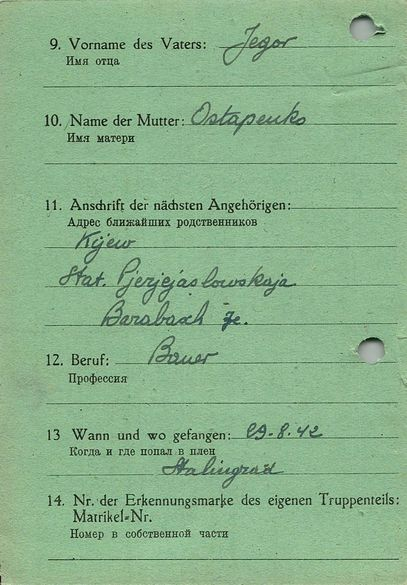 9. Vorname des Vaters: Jegor
Имя отца
10. Name der Mutter: Ostapenko
Имя матери
11. Anschrift der nächsten Angehörigen:
Адрес ближайших родственников
Kijew
Stat. Pjerjejaslowskaja
Barabasch Je.
12. Beruf: Bauer
Профессия
13 Wann und wo gefangen: 29-8-42
Когда и где попал в плен
Stalingrad
14. Nr. der Erkennungsmarke des eigenen Truppenteils:
Matrikel-Nr.
Номер в собственной части